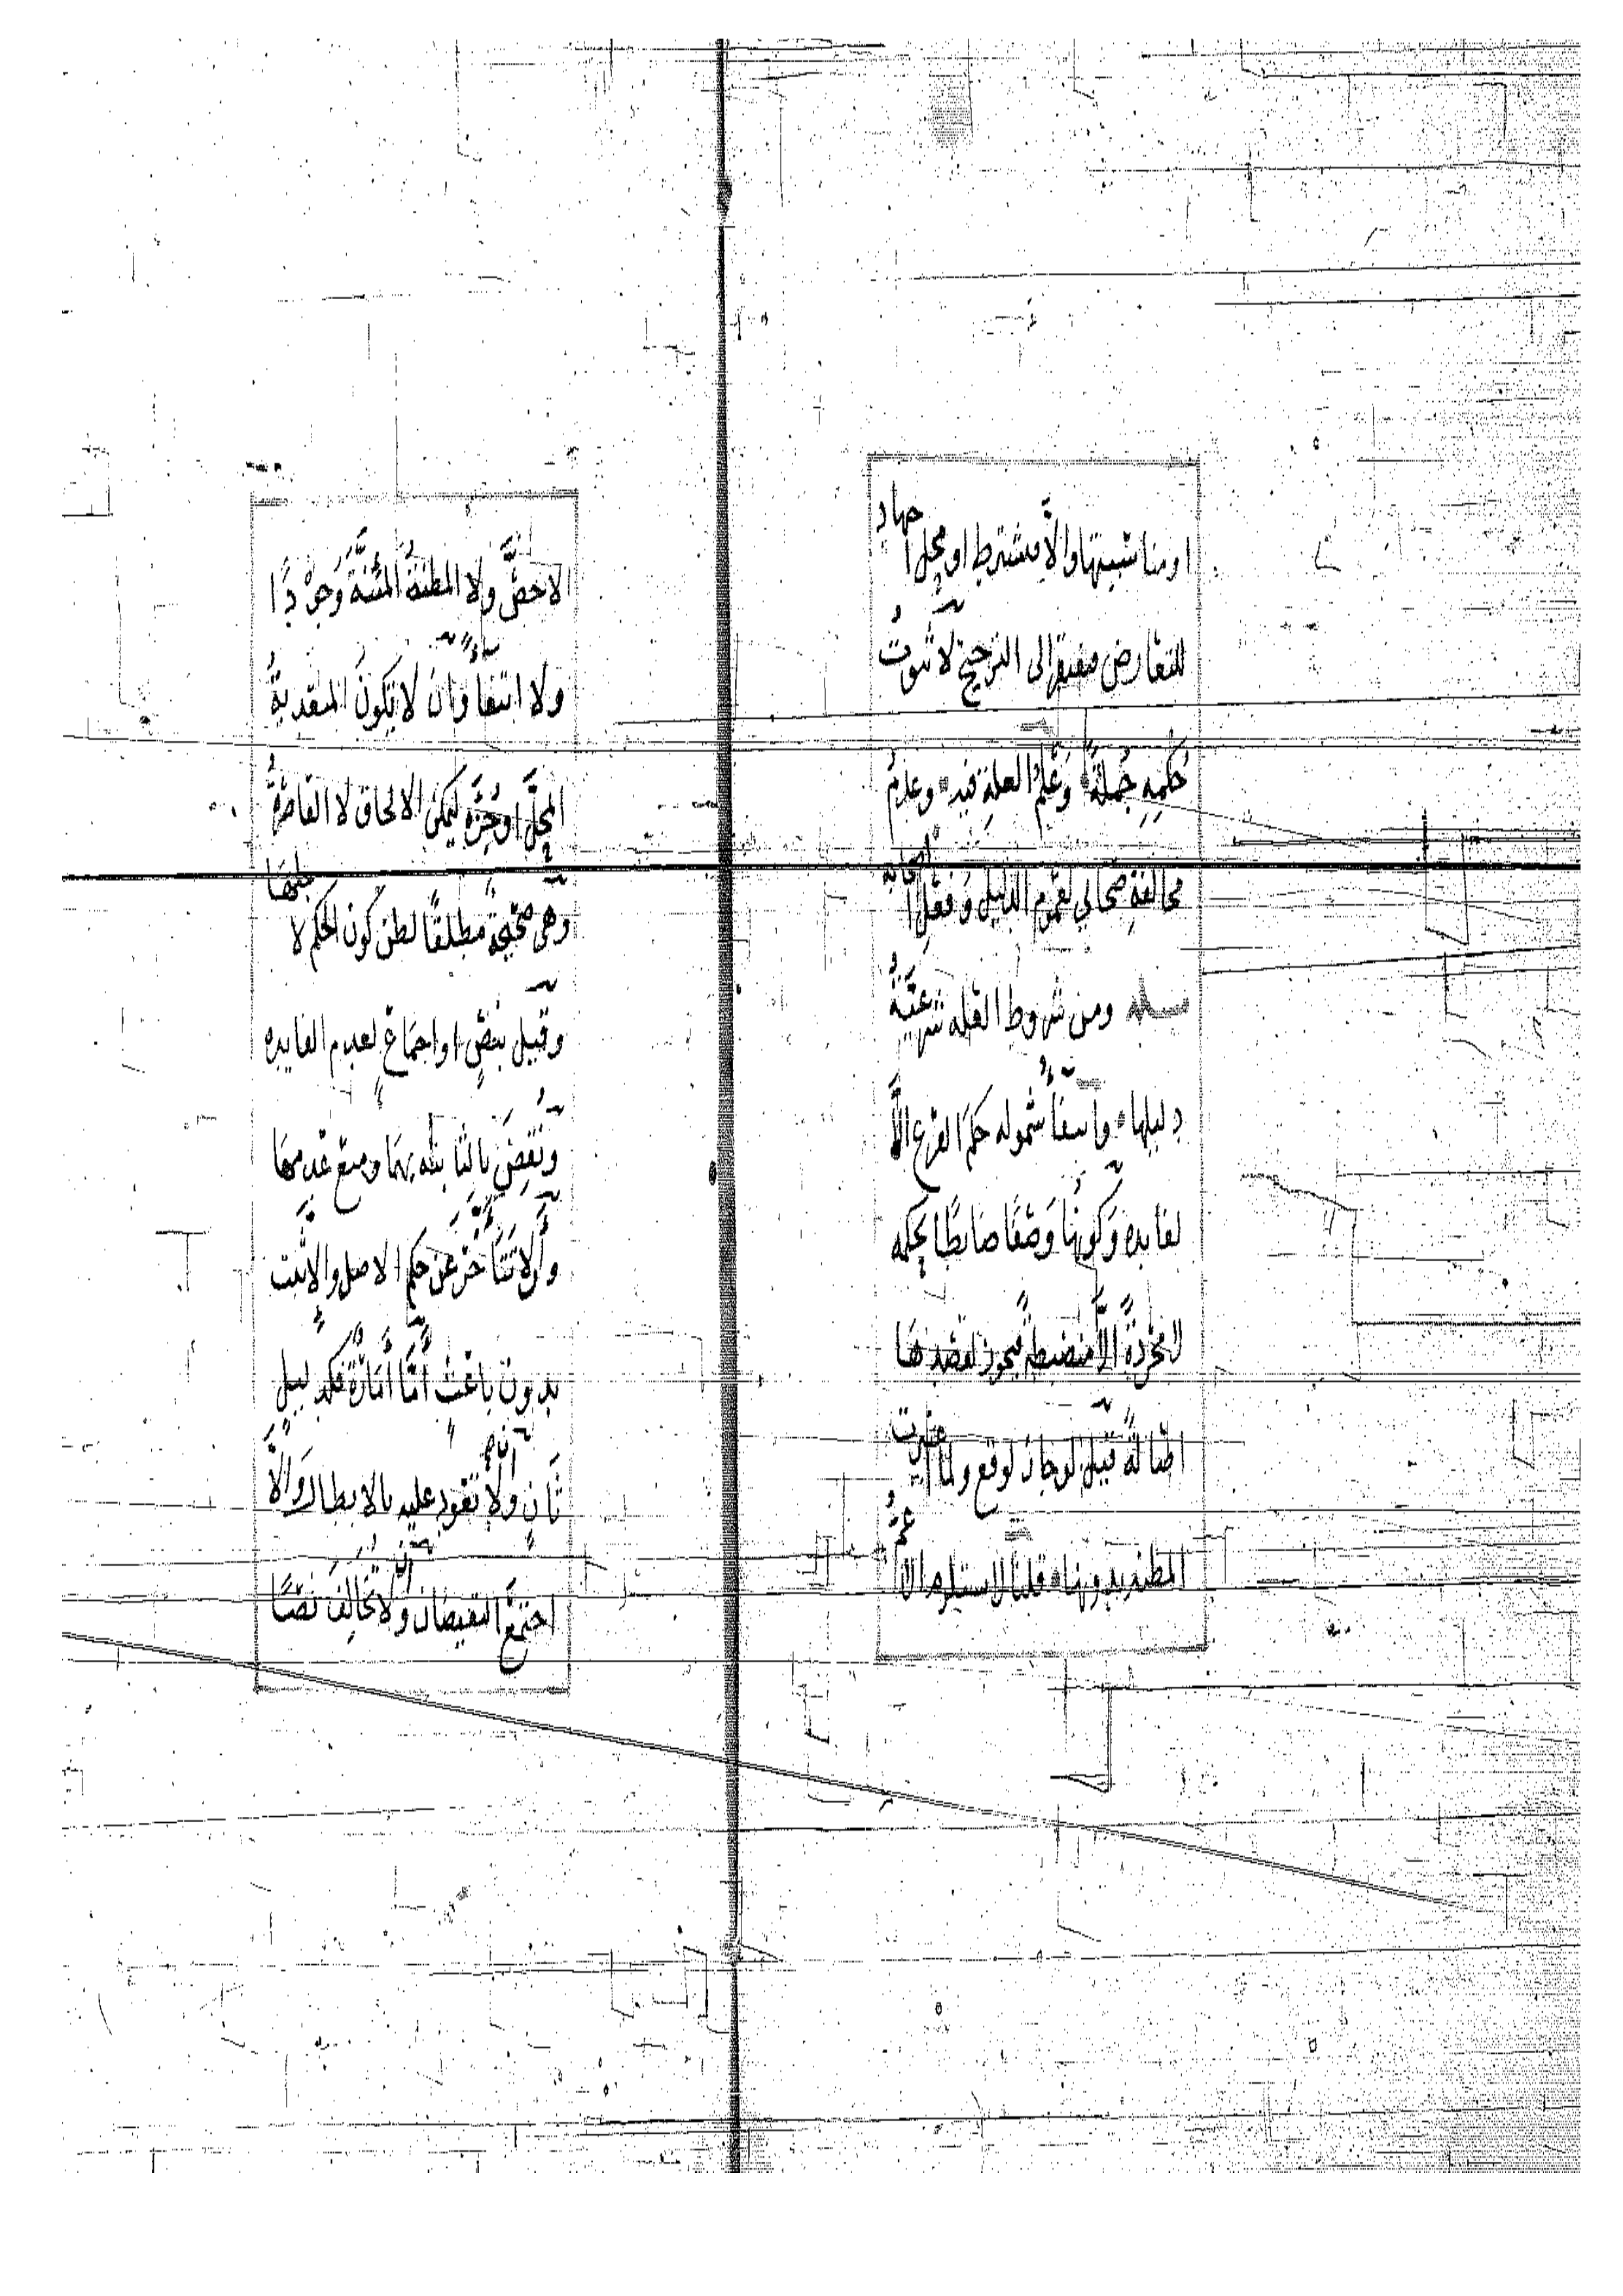 او مناسبتها والا فمشترط او محل اجتهاد
للتعارض مفتقر الى الترجيح لا ثبوت
حُكمِه جُملةً وعلم العلة فيه وعدم
مخالفة صحابي لعموم الدليل وفعل اصحابه
مسئله ومن شروط العله شرعيّةُ
دليلها وانتفاء شموله حكم الفرع الاّ
لفايده وكونها وصفًا ضابطًا لحكمه
لا مجردةً الا منضبطه فيجوز لقصدها
اصالةً قيل لو جاز لوقع ولما اعتبرت
المظنه بدونها قلنا لاستلزام الاعمِّ
الاخصَّ ولا المظنةُ المئنَّةَ وجودًا
ولا انتفاءً وان لا تكون المتعديةُ
المحلَّ او جُزءَه ليمكن الالحاق لا القاصرةُ
وهى صحيحةٌ مطلقًا لظن كون الحكم لاجلها
وقيل بنصٍّ او اجماعٍ لعدم الفايده
ونُقِضَ بالثابته بهما ومنع عدمها
وأن لا تتأخّر عن حكم الاصل والا ثبت
بدون باعث أمّا أمارةً فكدليل
ثانٍ وأن لا تعود عليه بالابطال والاّ
اجتمع النقيضان وأن لا تخالف نصًّا